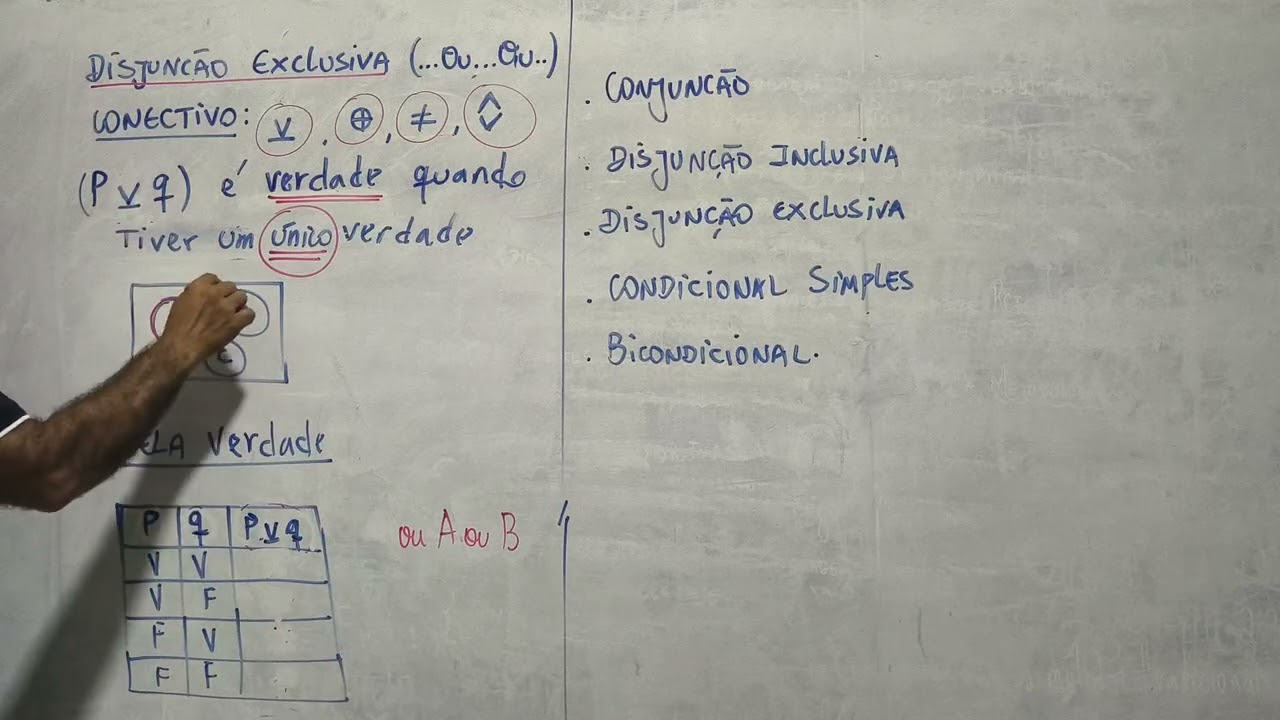 DISJUNCÃO EXCLUSIVA (...Ou...Ou..)
CONECTIVO: ⊻, ⊕, ≠, ◊
(P ⊻ q) é verdade quando
Tiver um único verdade
C
Verdade
P q P ⊻ q
V V
V F
F V
F F
ou A ou B
. CONJUNCÃO
. DISJUNÇÃO INCLUSIVA
. DISJUNÇÃO EXCLUSIVA
. CONDICIONAL SIMPLES
. BICONDICIONAL.